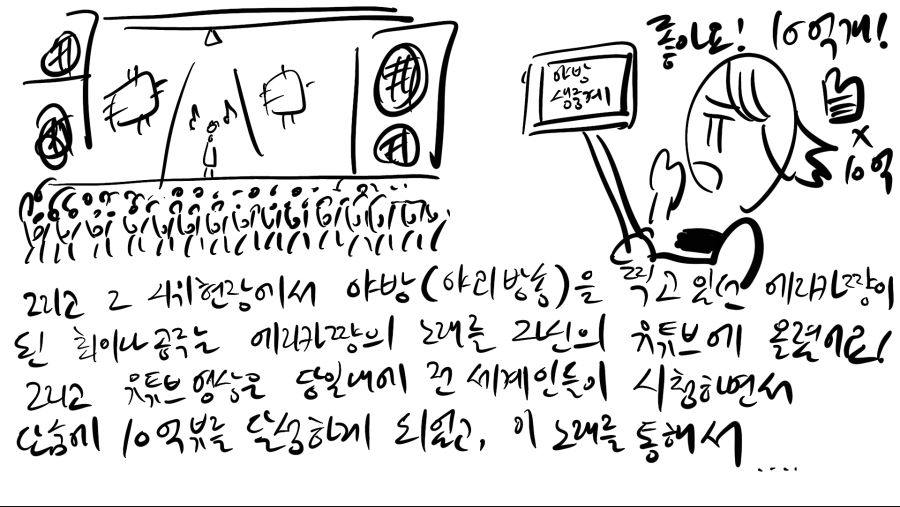 좋아요! 10억개!
야방
생중계
x
10억
그리고 그 시위현장에서 야방(야외방송)을 찍고 있던 에리카짱이
된 희이나 공주는 에리카짱의 노래를 자신의 유튜브에 올렸어요!
그리고 유튜브영상은 당일내에 전 세계인들이 시청하면서
단숨에 10억뷰를 달성하게 되었고, 이 노래를 통해서
....